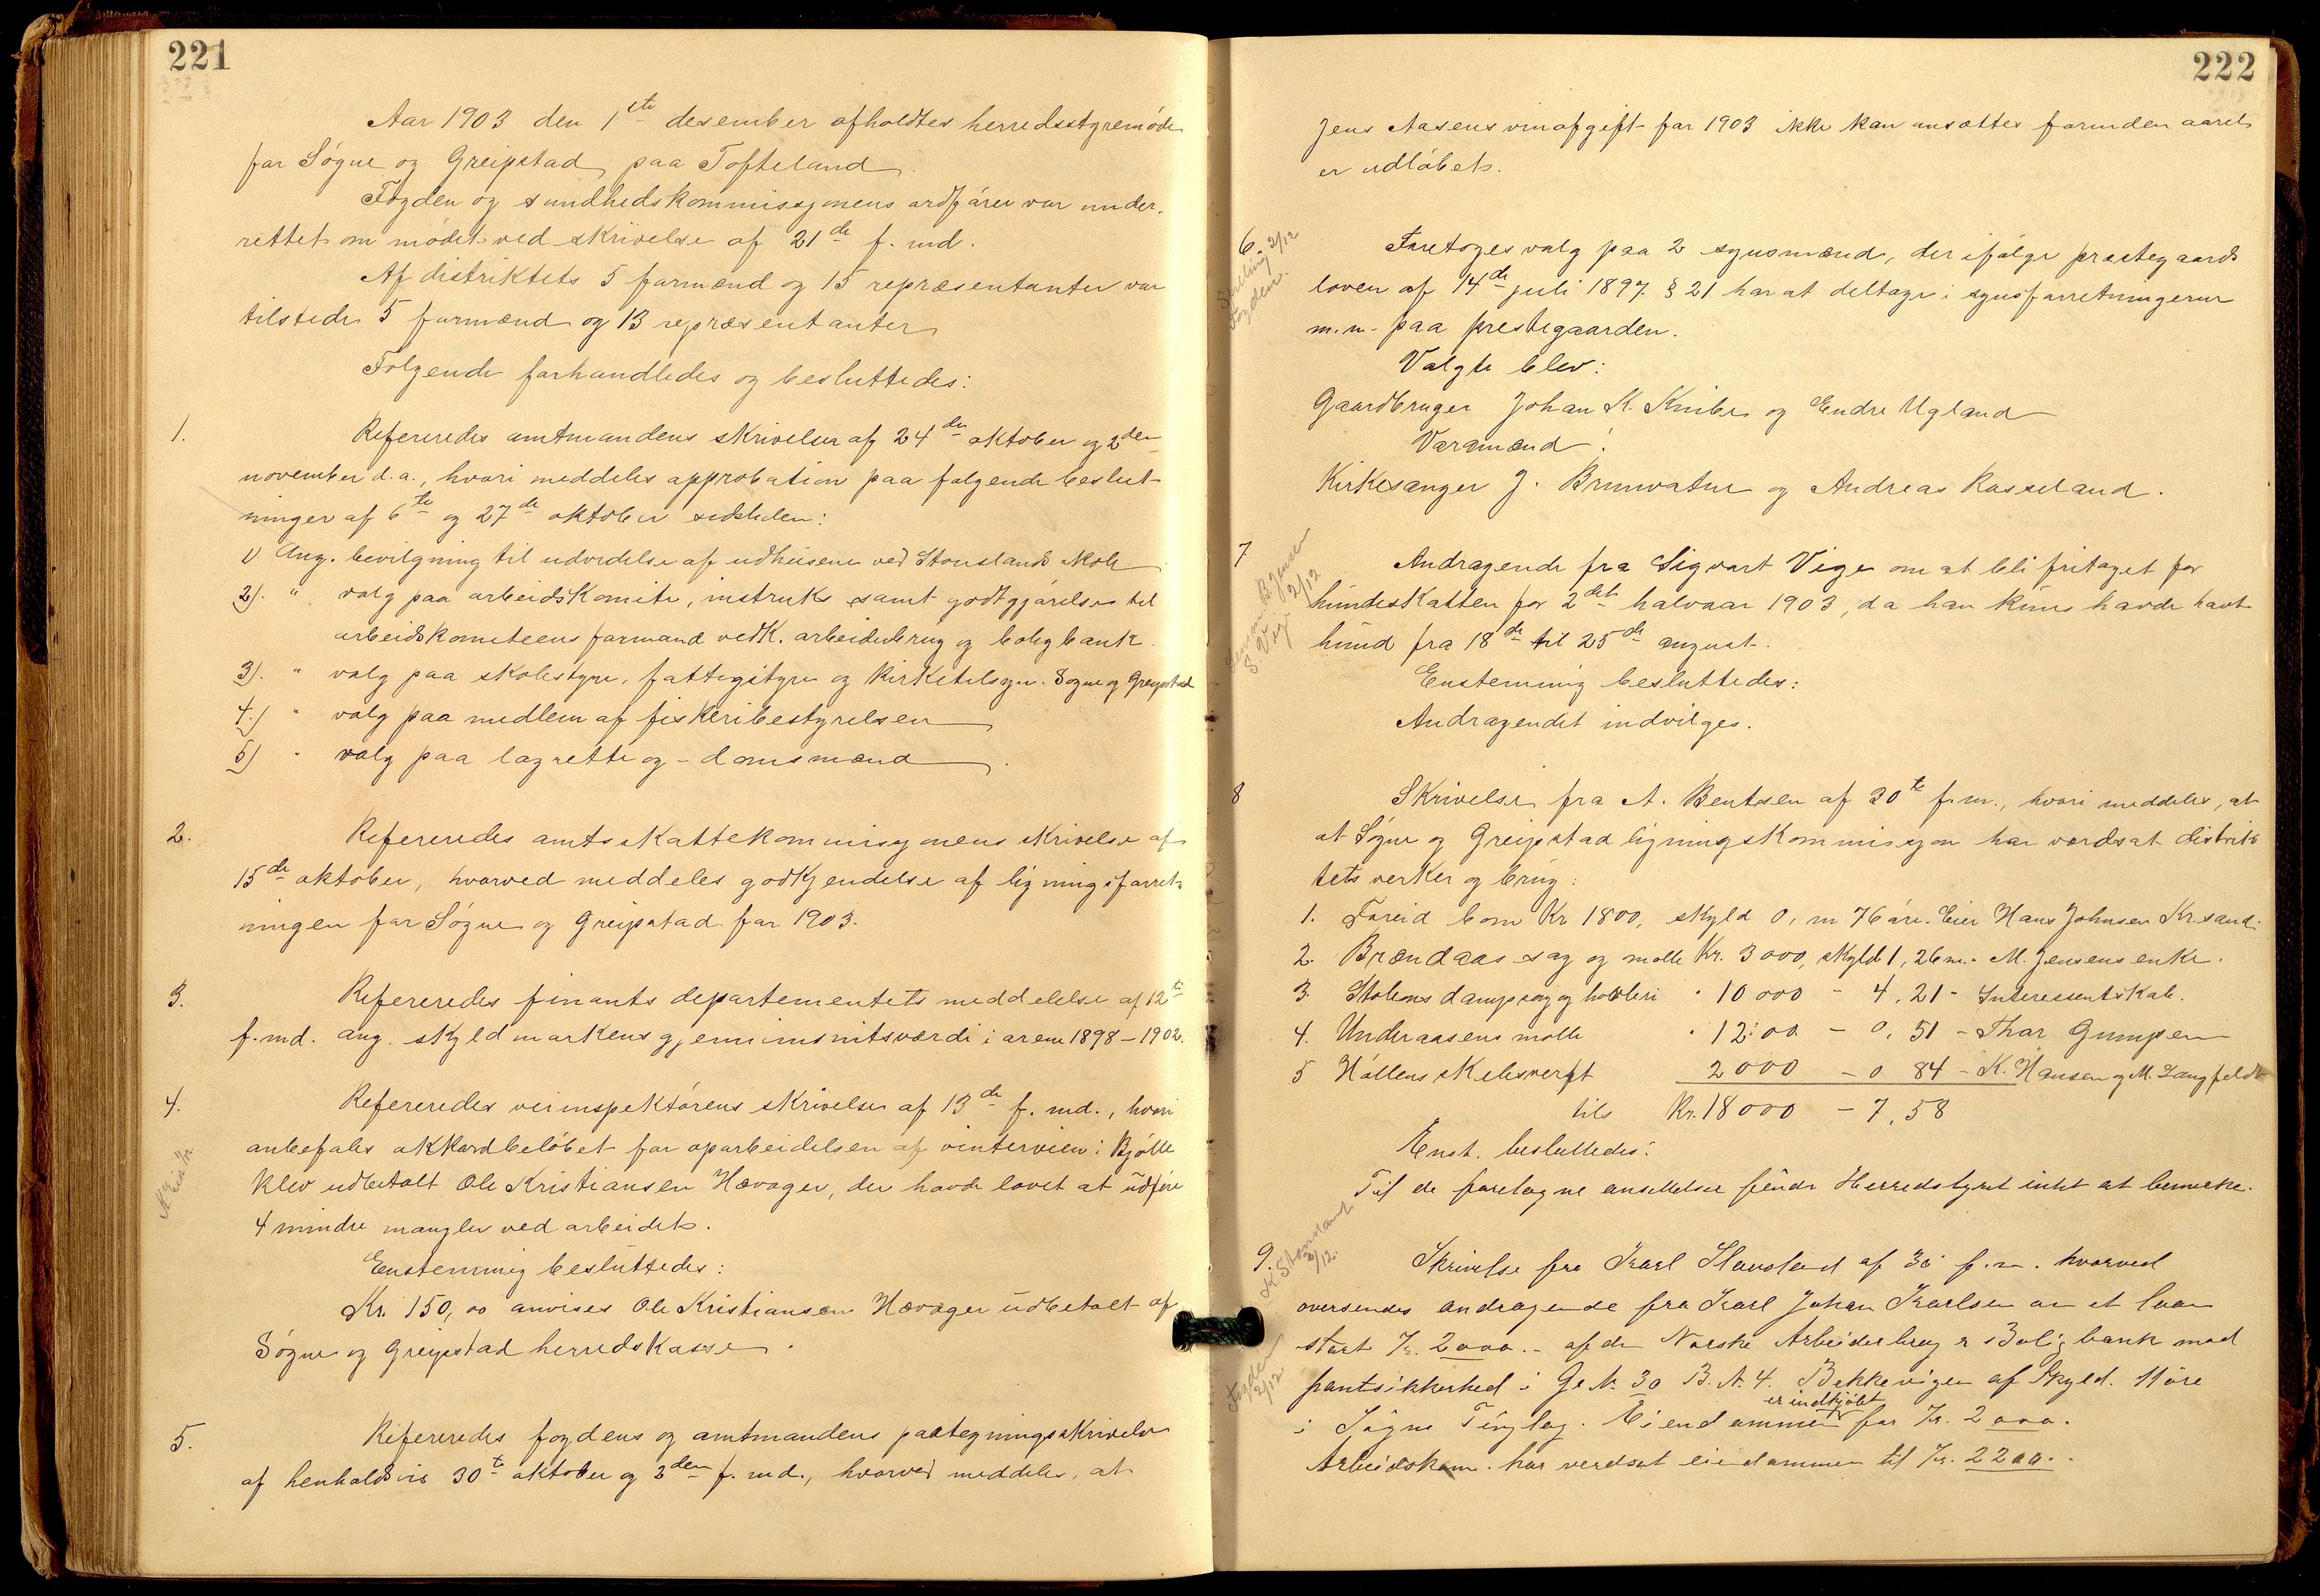 221
Aar 1903 den 1ste desember afholdtes herredsstyremøde
for Søgne og Greipstad paa Tofteland.
Fogden og sundhedskommissjonens ordfører var under-
rettet om mødet ved skrivelse af 21de f. md.
Af distriktets 5 formænd og 15 repræsentanter var
tilstede 5 formænd og 13 repræsentanter
Følgende forhandledes og besluttedes:
1. Refereredes amtmandens skrivelser af 24de oktober og 2den
november d.a., hvori meddeles approbation paa følgende beslut-
ninger af 6te og 27de oktober sidstleden:
1) Ang. bevilgning til udvidelse af udhusene ved Stouslands skole
2). " valg paa arbeidskomite, instruks samt godtgjørelse til
arbeidskomiteens formand vedk. arbeiderbrug og boligbank.
3). " valg paa skolestyre, fattigstyre og kirketilsyn. Søgne og Greipstad
4.) " valg paa medlem af fiskeribestyrelsen
5) " valg paa lagrette og - domsmænd.
2. Refereredes amtsskattekommisjonens skrivelse af
15de oktober, hvorved meddeles godkjendelse af ligningsforret-
ningen for Søgne og Greipstad for 1903.
3. Refereredes finantsdepartementets meddelelse af 12te
f. md. ang. skyldmarkens gjennemsnitsværdi i arene 1898-1902.
4. Refereredes veiinspektørens skrivelse af 13de f. md., hvori
anbefales akkordbeløbet for oparbeidelsen af vinterveien i Bjølle
klev udbetalt Ole Kristiansen Hævager, der havde lovet at udføre
4 mindre mangler ved arbeidet.
Enstemmig besluttedes:
Kr. 150,00 anvises Ole Kristiansen Hævager udbetalt af
Søgne og Greipstad herredskasse.
5. Refereredes fogdens og amtmandens paategningsskrivelse
af henholdsvis 30te oktober og 3den f. md., hvorved meddeles, at
222
Jens Aasens vinafgift for 1903 ikke kan ansættes forinden aaret
er udløbet.
6. Foretoges valg paa 2 synsmænd, der ifølge præstegaards
loven af 14de juli 1897 § 21 har at deltage i synsforretningerne
m.m. paa prestegaarden.
Valgte blev:
Gaardbruger Johan K. Knibe og Endre Ugland
Varamænd:
Kirkesanger J. Brunvatne og Andreas Rosseland.
7 Andragende fra Sigvart Vige om at bli fritaget for
hundeskatten for 2det halvaar 1903, da han kuns havde havt
hund fra 18de til 25de august.
Enstemmig besluttedes:
Andragendet indvilges.
8 Skrivelse fra A. Bentsen af 30te f.m., hvori meddeles, at
at Søgne og Greipstad ligningskommisjon har værdsat distrik
tets verker og brug:
1. Føreid bom Kr 1800, skyld 0, m 76 øre. Eier Hans Johnsen Kr.sand.
2. Brændaas sag og mølle Kr. 3000, skyld 1,26 m. - M. Jensens enke.
3. Stølens dampsag og høvleri " 10000 - 4,21 - Interessentskab.
4. Underaasens mølle " 12:00 - 0,51 - Thor Gumpen
5 Høllens skibsverft 2000 - 0 84 - K. Hansen og M. Langfeldt
tils Kr. 18000 - 7,58
Enst. besluttedes:
Til de foretagne ansættelser finder Herredstyret intet at bemerke.
9. Skrivelse fra Karl Stausland af 30 f.m. hvorved
oversendes andragende fra Karl Johan Karlsen om et laan
stort Kr. 2000.- af den Norske Arbeiderbrug & Bolig bank mod
pantsikkerhed i G. N. 30 B. N. 4. Bekkevigen af Skyld. 11 øre
er indkjøbt
i Søgne Tinglag. Eiendommen for Kr. 2000.
Arbeidskom. har verdsat eiendommen til Kr. 2200.-